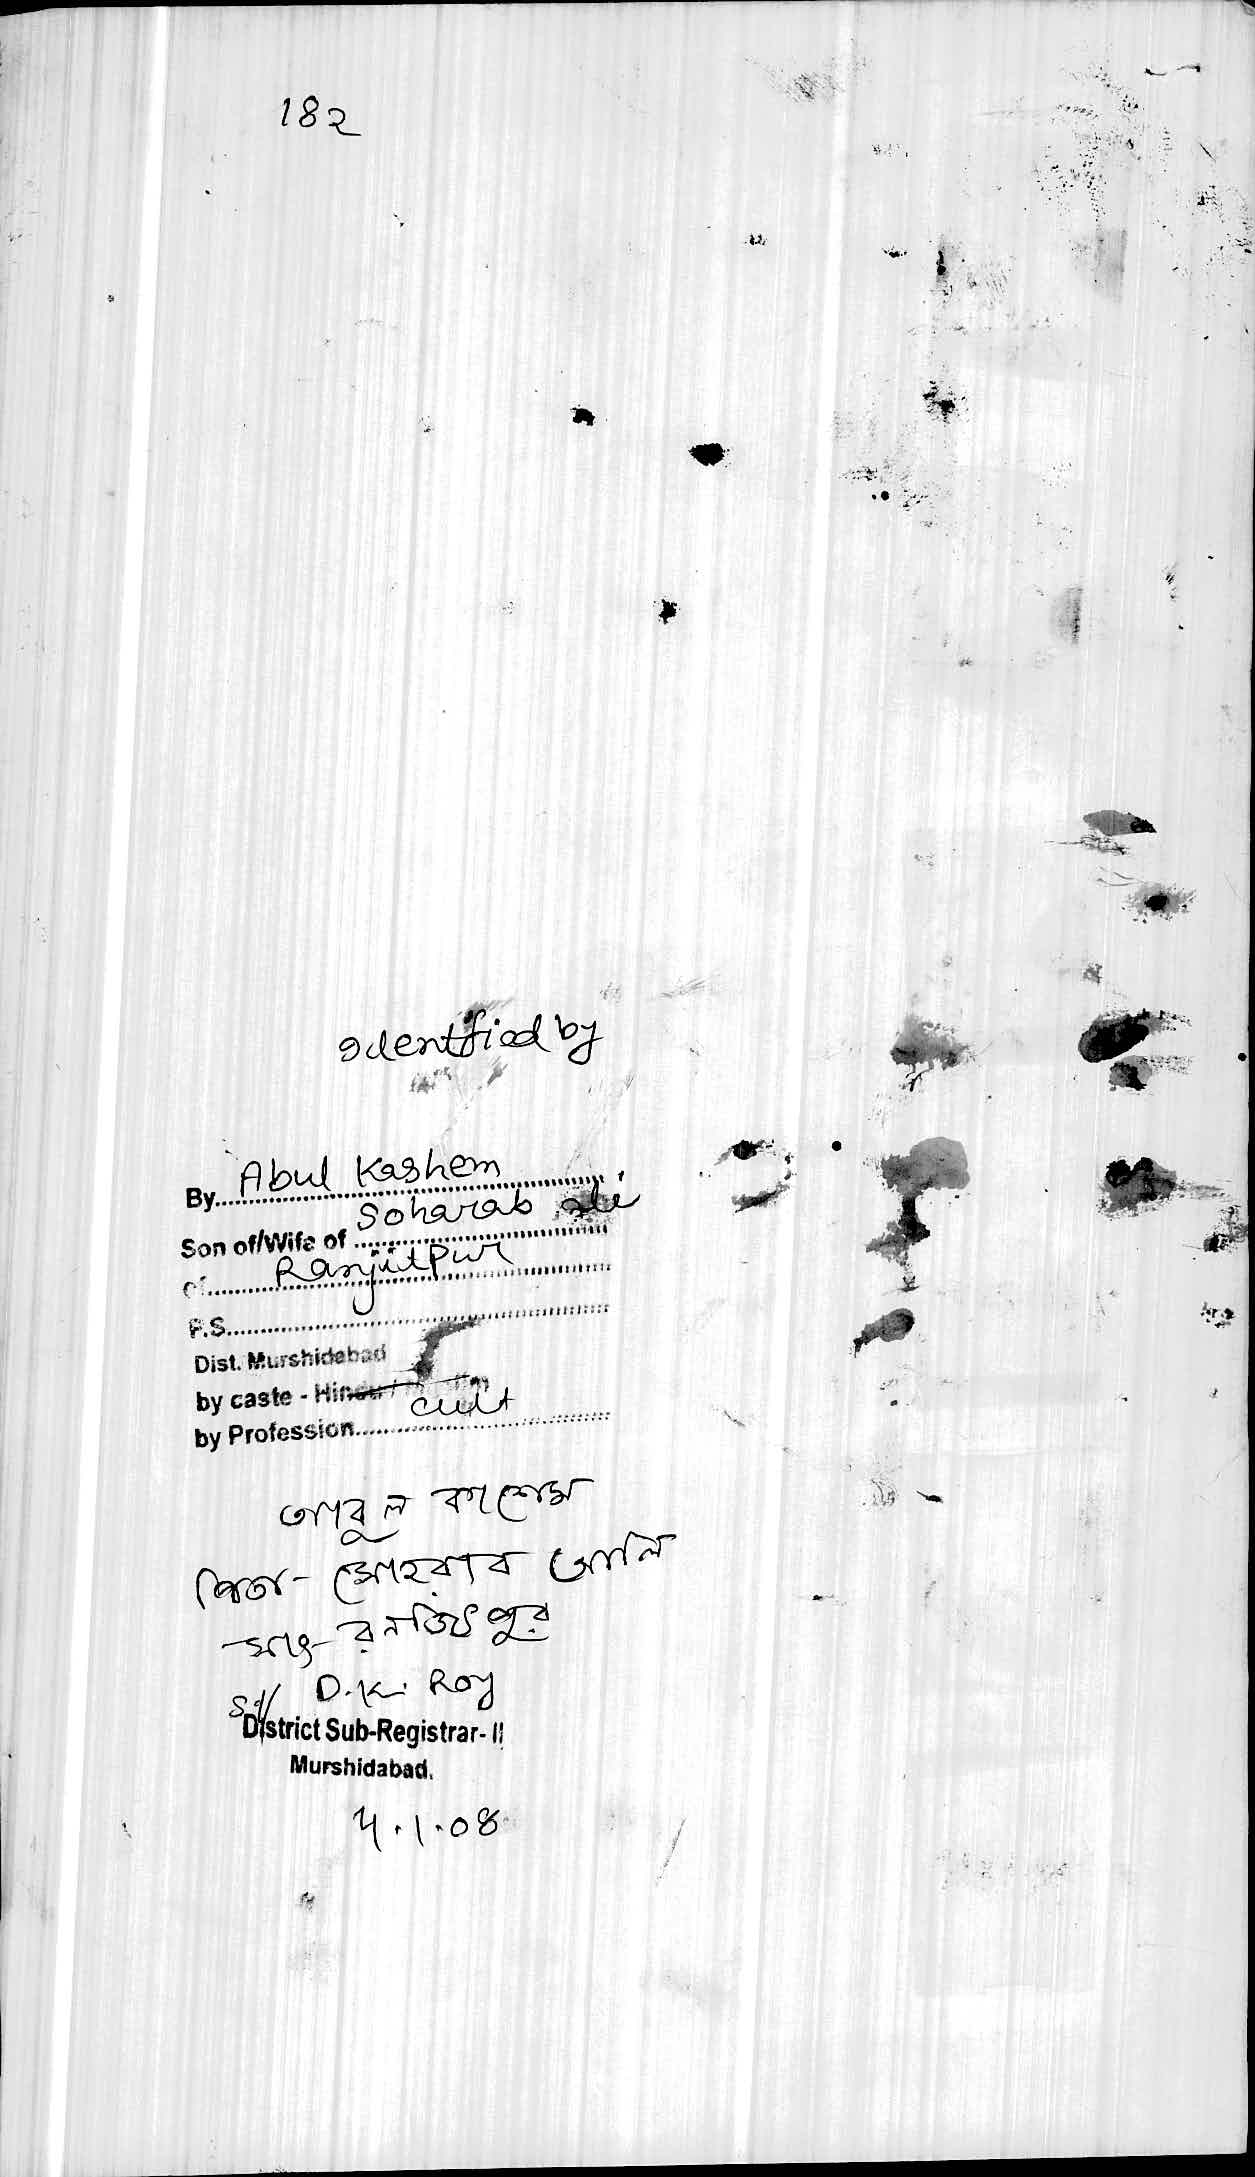 182
Identified by
By Abul Kashem
Son of/Wife of Soharab Ali
of Ranjitpur
P.S.
Dist. Murshidabad
by caste - Hindu / Muslim
by Profession Cult
আবুল কাশেম
পিতা- সোহরাব আলি
সাং- রনজিৎপুর
Sd/ D.K. Roy
District Sub-Registrar- II
Murshidabad.
4.1.08